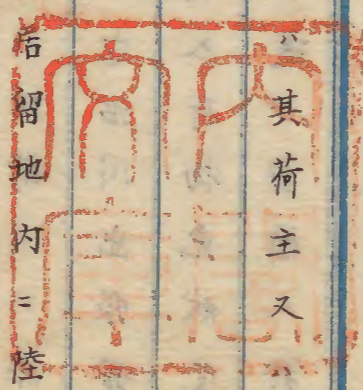 ハ其荷主又ハ
居留地内ニ陸